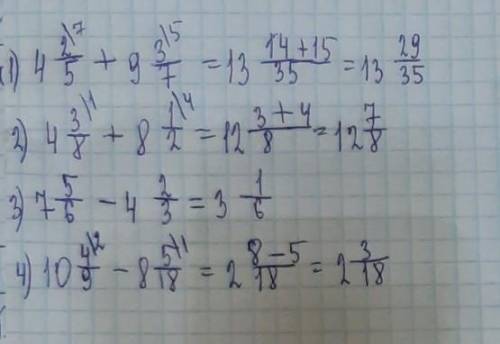 1) 4 2/5 \7 + 9 3/7 \5 = 13 (14+15)/35 = 13 29/35
2) 4 3/8 \1 + 8 1/2 \4 = 12 (3+4)/8 = 12 7/8
3) 7 5/6 - 4 2/3 = 3 1/6
4) 10 4/9 \2 - 8 5/18 \1 = 2 (8-5)/18 = 2 3/18